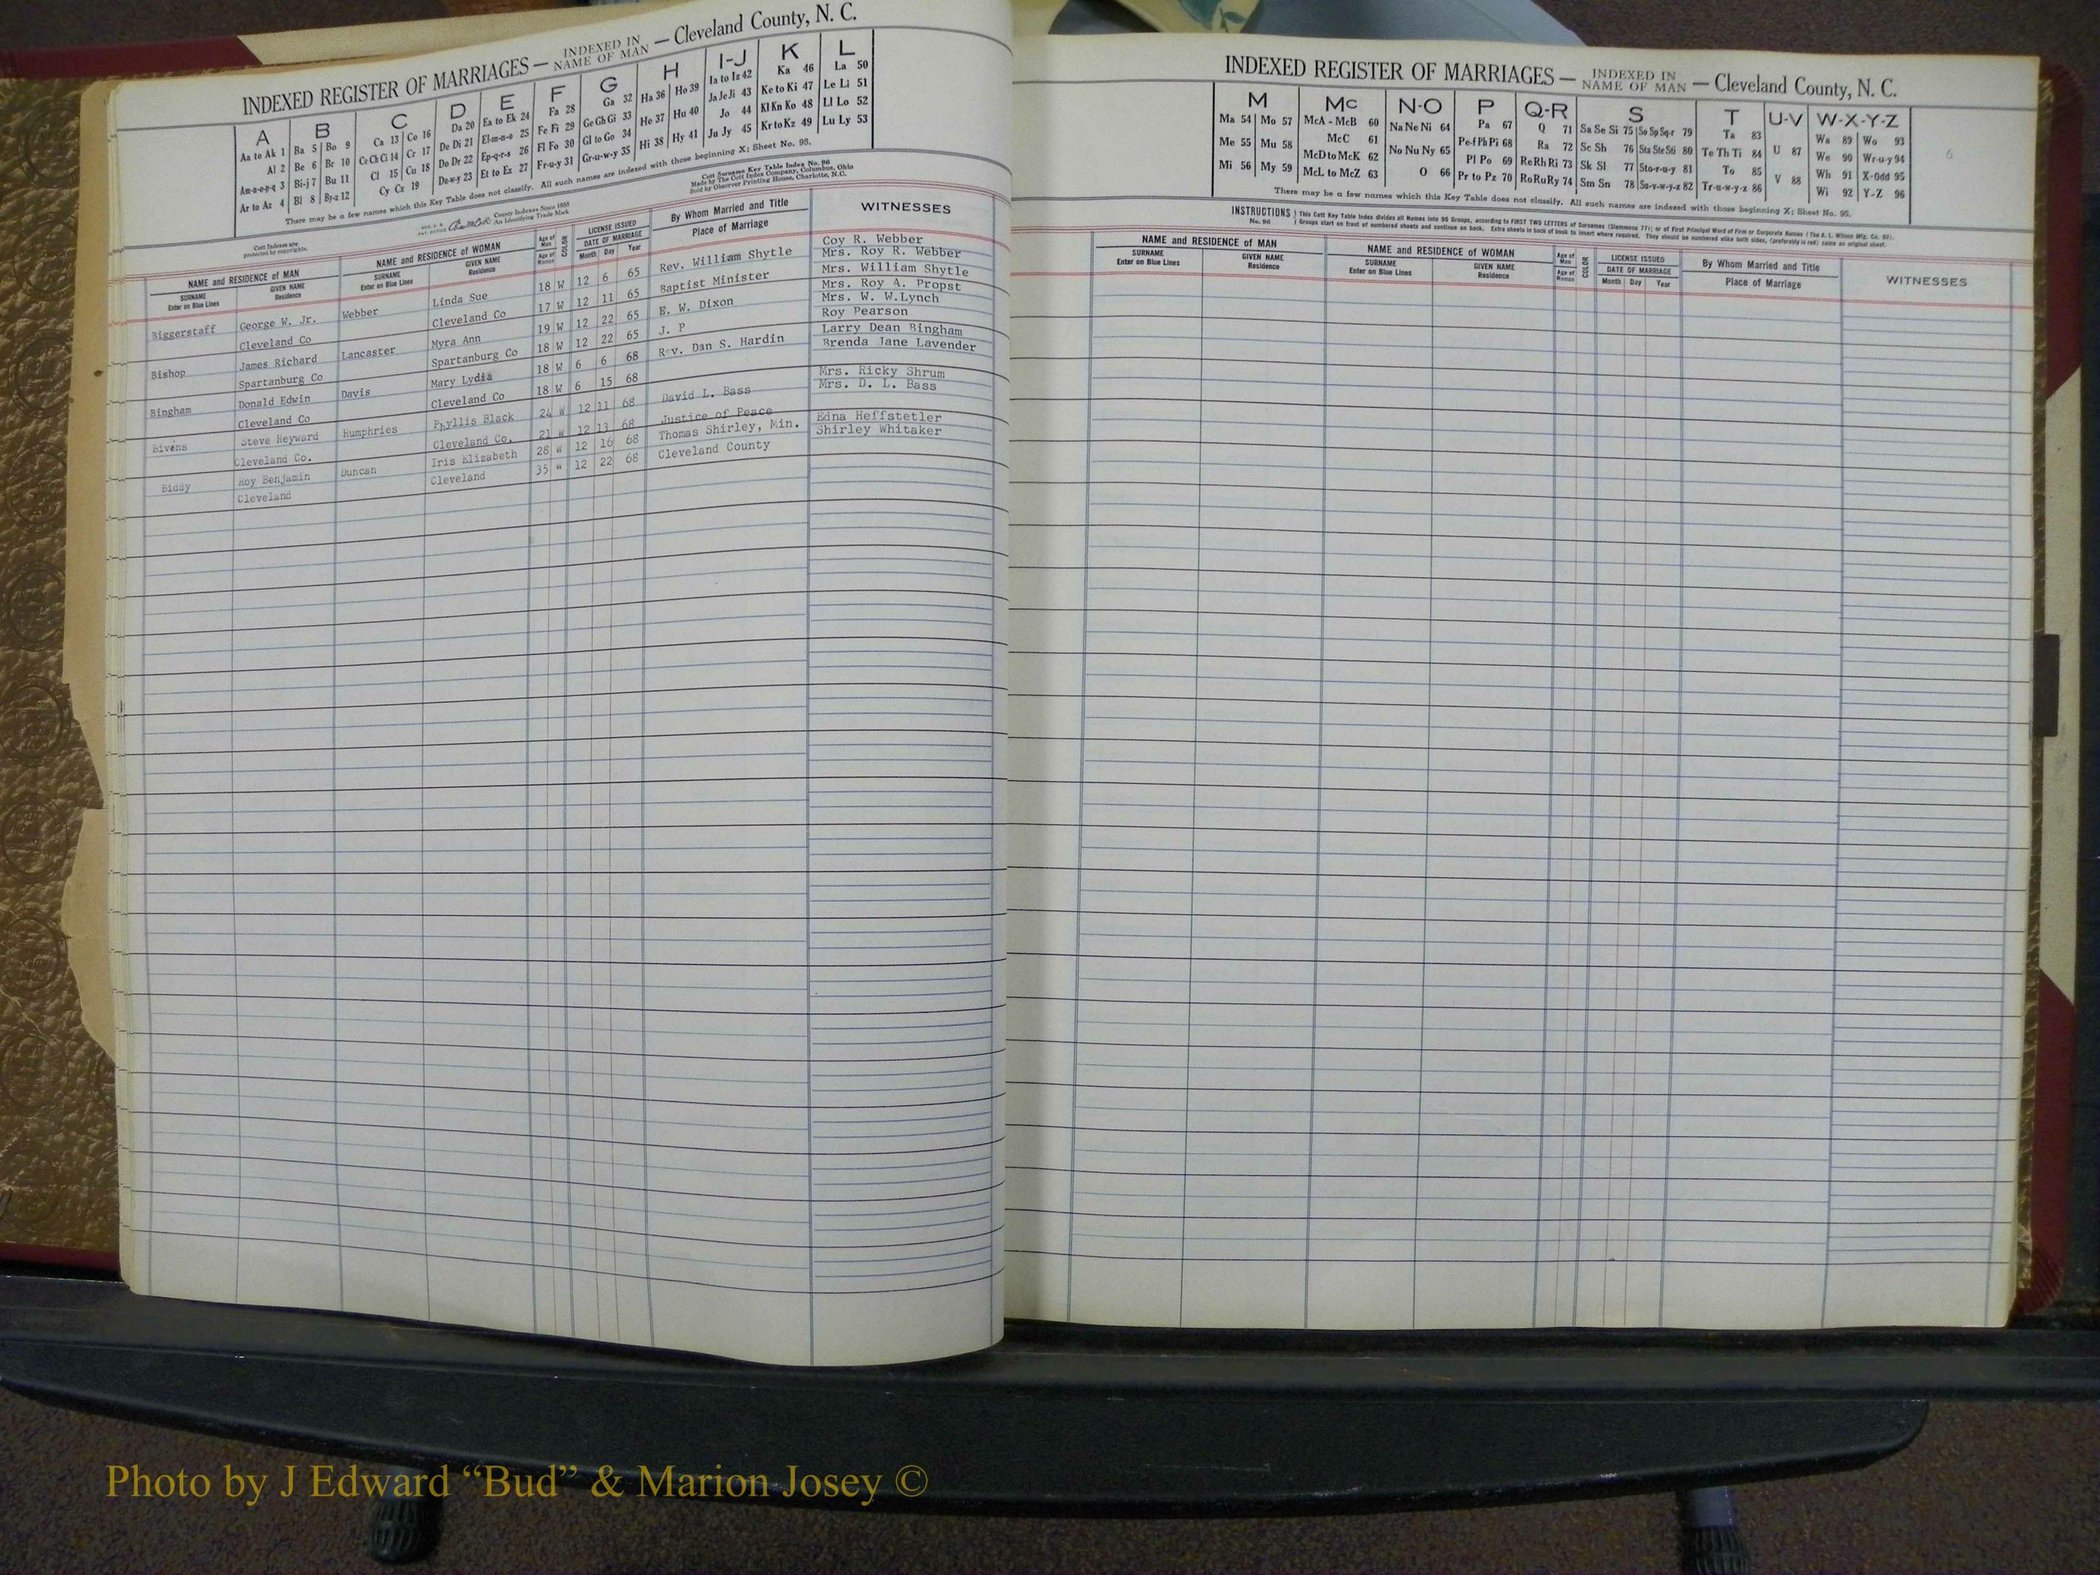 INDEXED REGISTER OF MARRIAGES — INDEXED IN NAME OF MAN — Cleveland County, N. C.
A B C D E F G H I-J K L
Aa to Ak 1 Ba 5 Bo 9 Ca 13 Co 16 Da 20 Ea to Ek 24 Fa 28 Ga 32 Ha 36 Ho 39 Ia to Iz 42 Ka 46 La 50
Al 2 Be 6 Br 10 Ce Ch Ci 14 Cr 17 De Di 21 El-m-n-o 25 Fe Fi 29 Ge Gh Gi 33 He 37 Hu 40 Ja Je Ji 43 Ke to Ki 47 Le Li 51
Am-n-o-p-q 3 Bi-j 7 Bu 11 Cl 15 Cu 18 Do Dr 22 Ep-q-r-s 26 Fl Fo 30 Gl to Go 34 Hi 38 Hy 41 Jo 44 Kl Kn Ko 48 Ll Lo 52
Ar to Az 4 Bl 8 By-z 12 Cy Cz 19 Du-w-y 23 Et to Ez 27 Fr-u-y 31 Gr-u-w-y 35 Ju Jy 45 Kr to Kz 49 Lu Ly 53
There may be a few names which this Key Table does not classify. All such names are indexed with those beginning X; Sheet No. 95.
Cott Indexes are protected by copyrights.
County Indexes Since 1888
An Identifying Trade Mark
Cott Surname Key Table Index No. 96
Made by The Cott Index Company, Columbus, Ohio
Sold by Observer Printing House, Charlotte, N.C.
NAME and RESIDENCE of MAN NAME and RESIDENCE of WOMAN Age of Man COLOR LICENSE ISSUED By Whom Married and Title WITNESSES
SURNAME GIVEN NAME SURNAME GIVEN NAME Age of Woman DATE OF MARRIAGE Place of Marriage
Enter on Blue Lines Residence Enter on Blue Lines Residence Month Day Year
Biggerstaff George W. Jr. Webber Linda Sue 18 W 12 6 65 Rev. William Shytle Coy R. Webber
Mrs. Roy R. Webber
Cleveland Co Cleveland Co 17 W 12 11 65 Baptist Minister Mrs. William Shytle
Bishop James Richard Lancaster Myra Ann 19 W 12 22 65 E. W. Dixon Mrs. Roy A. Propst
Mrs. W. W.Lynch
Spartanburg Co Spartanburg Co 18 W 12 22 65 J. P Roy Pearson
Bingham Donald Edwin Davis Mary Lydia 18 W 6 6 68 Rev. Dan S. Hardin Larry Dean Bingham
Cleveland Co Cleveland Co 18 W 6 15 68 Brenda Jane Lavender
Bivens Steve Heyward Humphries Phyllis Black 24 W 12 11 68 David L. Bass Mrs. Ricky Shrum
Cleveland Co. Cleveland Co. 21 W 12 13 68 Justice of Peace Mrs. D. L. Bass
Biddy Roy Benjamin Duncan Iris Elizabeth 28 W 12 16 68 Thomas Shirley, Min. Edna Heffstetler
Cleveland Cleveland 35 W 12 22 68 Cleveland County Shirley Whitaker
INDEXED REGISTER OF MARRIAGES — INDEXED IN NAME OF MAN — Cleveland County, N. C.
M Mc N-O P Q-R S T U-V W-X-Y-Z
Ma 54 Mo 57 McA - McB 60 Na Ne Ni 64 Pa 67 Q 71 Sa Se Si 75 So Sp Sq-r 79 Ta 83 U 87 Wa 89 Wo 93 6
Me 55 Mu 58 McC 61 No Nu Ny 65 Pe-f Ph Pi 68 Ra 72 Sc Sh 76 Sta Ste Sti 80 Te Th Ti 84 V 88 We 90 Wr-u-y 94
Mi 56 My 59 McD to McK 62 O 66 Pl Po 69 Re Rh Ri 73 Sk Sl 77 Sto-r-u-y 81 To 85 Wh 91 X-Odd 95
McL to McZ 63 Pr to Pz 70 Ro Ru Ry 74 Sm Sn 78 Su-v-w-y-z 82 Tr-u-w-y-z 86 Wi 92 Y-Z 96
There may be a few names which this Key Table does not classify. All such names are indexed with those beginning X; Sheet No. 95.
INSTRUCTIONS No. 96 This Cott Key Table Index divides all Names into 96 Groups, according to FIRST TWO LETTERS of Surnames
Groups start on front of numbered sheets and continue on back. Extra sheets in back of book to insert where required. They should be numbered alike both sides, (preferably in red) same as original sheet.
NAME and RESIDENCE of MAN NAME and RESIDENCE of WOMAN Age of Man COLOR LICENSE ISSUED By Whom Married and Title WITNESSES
SURNAME GIVEN NAME SURNAME GIVEN NAME Age of Woman DATE OF MARRIAGE Place of Marriage
Enter on Blue Lines Residence Enter on Blue Lines Residence Month Day Year
Photo by J Edward “Bud” & Marion Josey ©